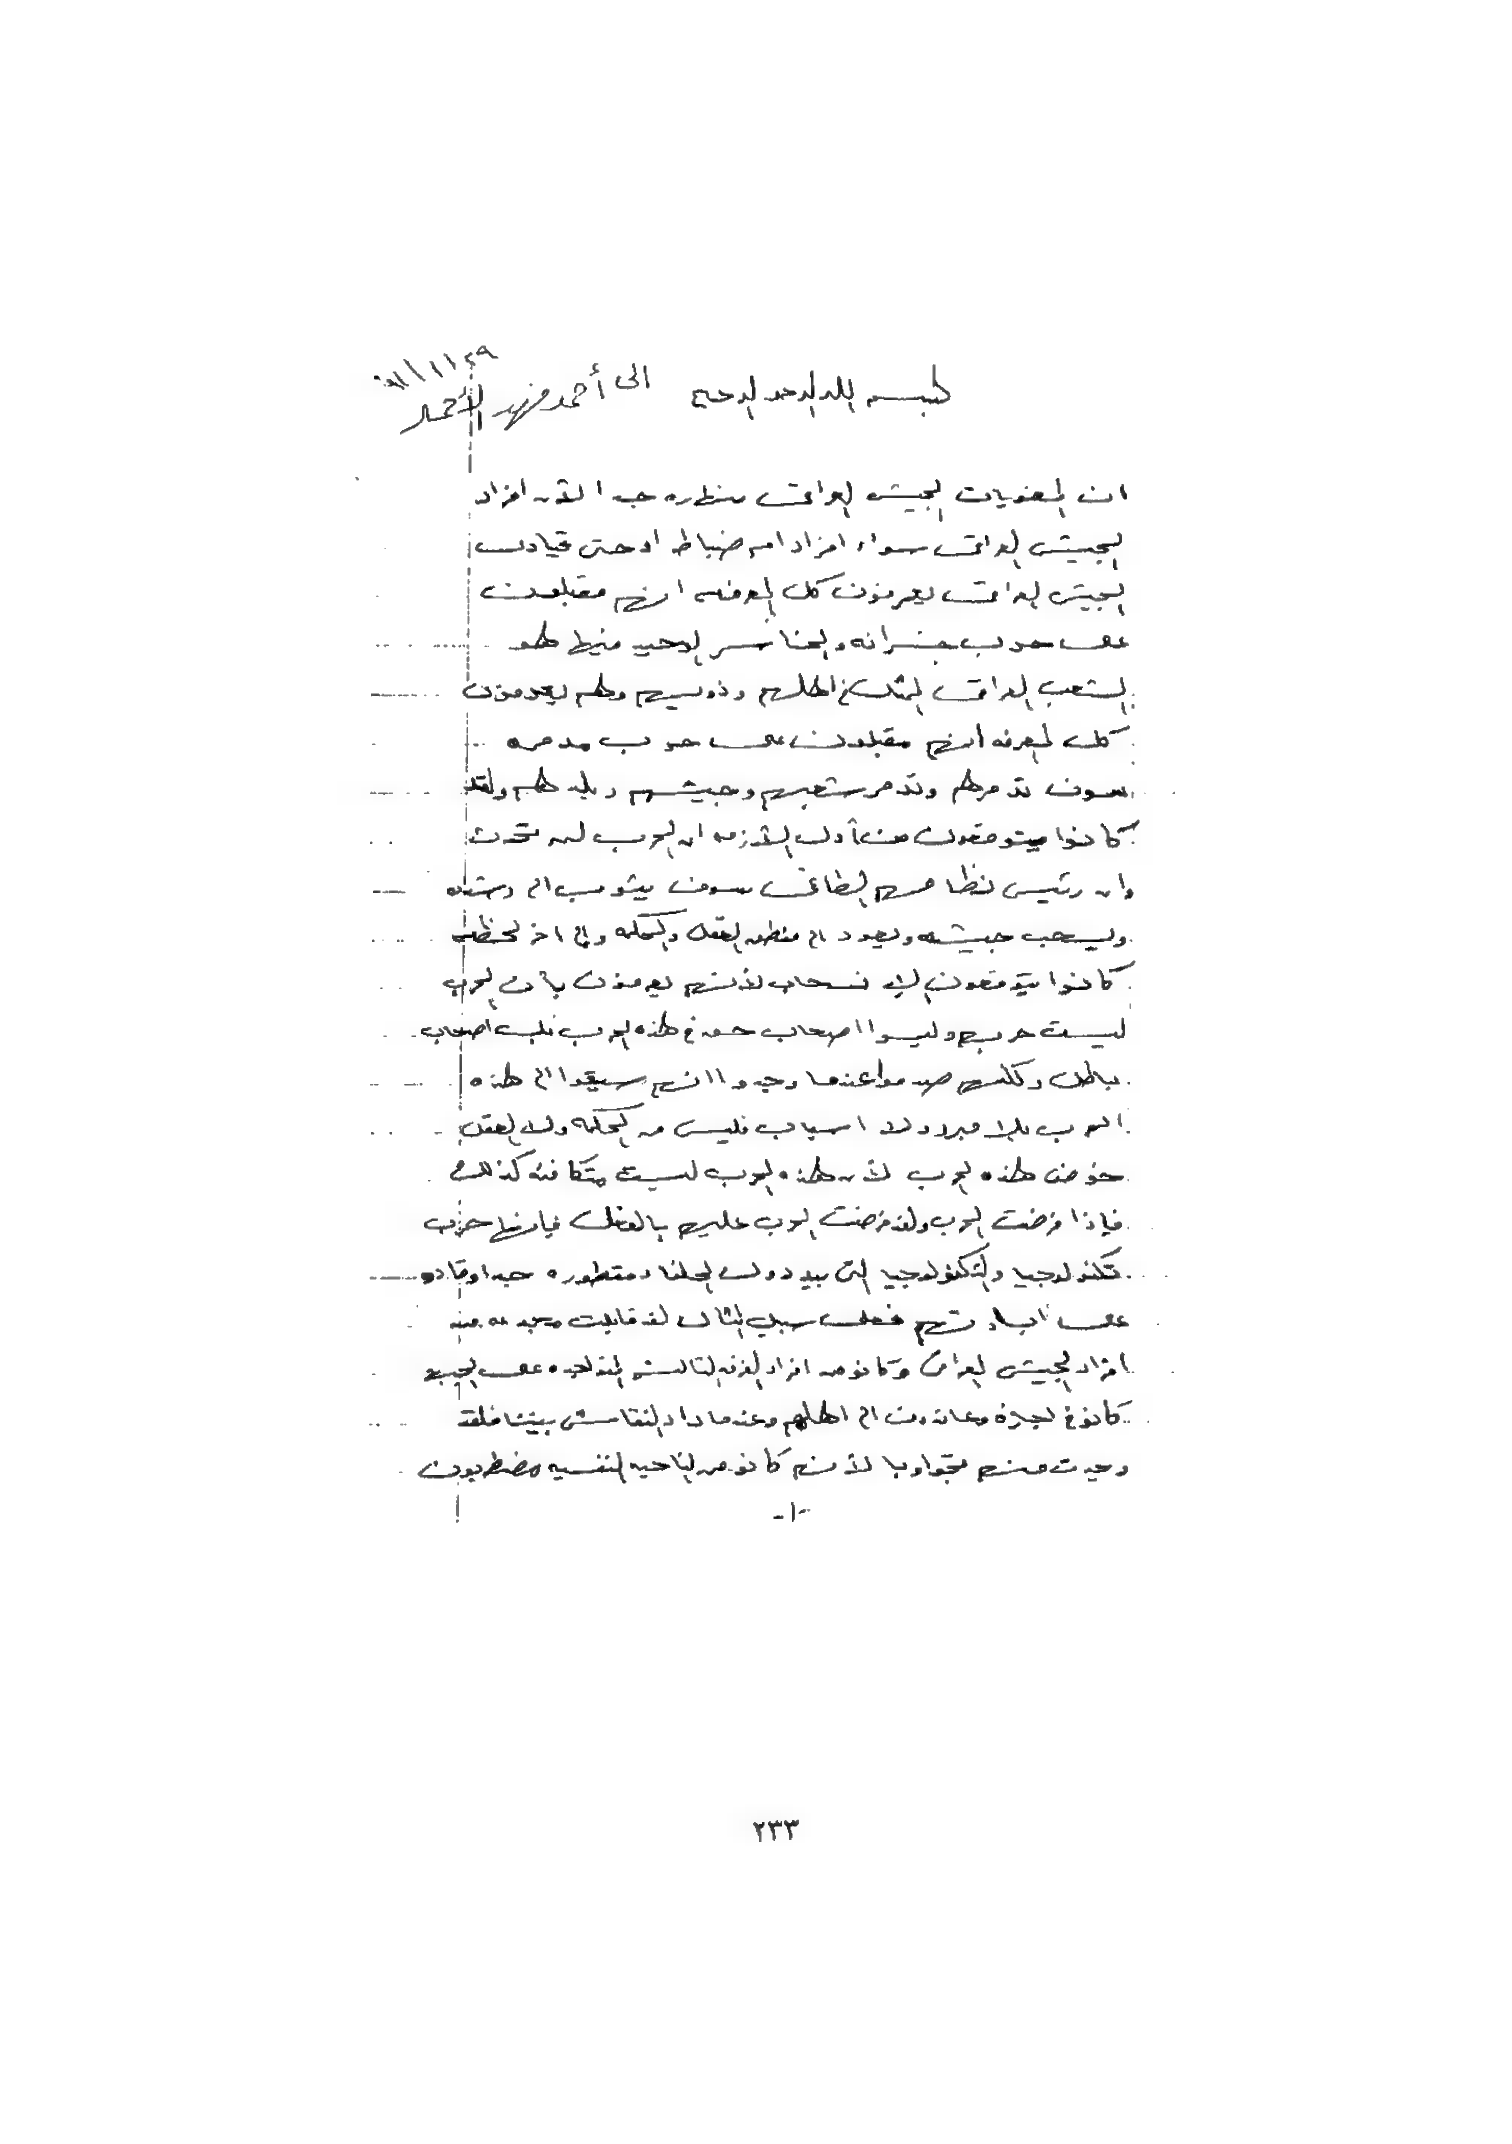 ٢٩/١/١٩٩١
بسم الله الرحمن الرحيم الى أحمد فهد الأحمد
ان المعنويات الجيش العراقي منهاره جدا لأن افراد
الجيش العراقي سواء افراد ام ضباط او حتى قيادات
الجيش العراقي يعرفون كل المعرفه انهم مقبلون
على حرب خسرانه والخاسر الوحيد فيها هو
الشعب العراقي المتمثل في اهلهم وذويهم وهم يعرفون
كل المعرفه انهم مقبلون على حرب مدمره
سوف تدمرهم وتدمر شعبهم وجيشهم وبلدهم ولقد
كانوا يتوقعون من أول الأزمه ان الحرب لن تحدث
وان رئيس نظامهم الطاغي سوف يثوب الى رشده
ويسحب جيشه ويعود الى منطق العقل والحكمه والى اخر لحظه
كانوا يتوقعون الإنسحاب لأنهم يعرفون بأن الحرب
ليست حربهم وليسوا اصحاب حق في هذه الحرب بل اصحاب
باطل ولكنهم صدموا عندما وجدوا انهم سيقوا الى هذه
الحرب بلا مبرر ولا اسباب فليس من الحكمه ولا العقل
خوض هذه الحرب لأن هذه الحرب ليست متكافئه كذلك
فإذا فرضت الحرب ولقد فرضت الحرب عليهم بالفعل فإنها حرب
تكنولوجيا والتكنولوجيا التي بيد دول الحلفاء متطوره جدا وقادره
على ابادتهم فعلى سبيل المثال لقد قابلت مجموعه من
افراد الجيش العراقي وكانو من افراد الفرقه الثالثه المتواجده على الجبهه
كانو في اجازه وعائدون الى اهلهم وعندما دار النقاش بيننا فلقد
وجدت منهم تجاوبا لأنهم كانو من الناحيه النفسيه مضطربون
-١-
٢٣٣